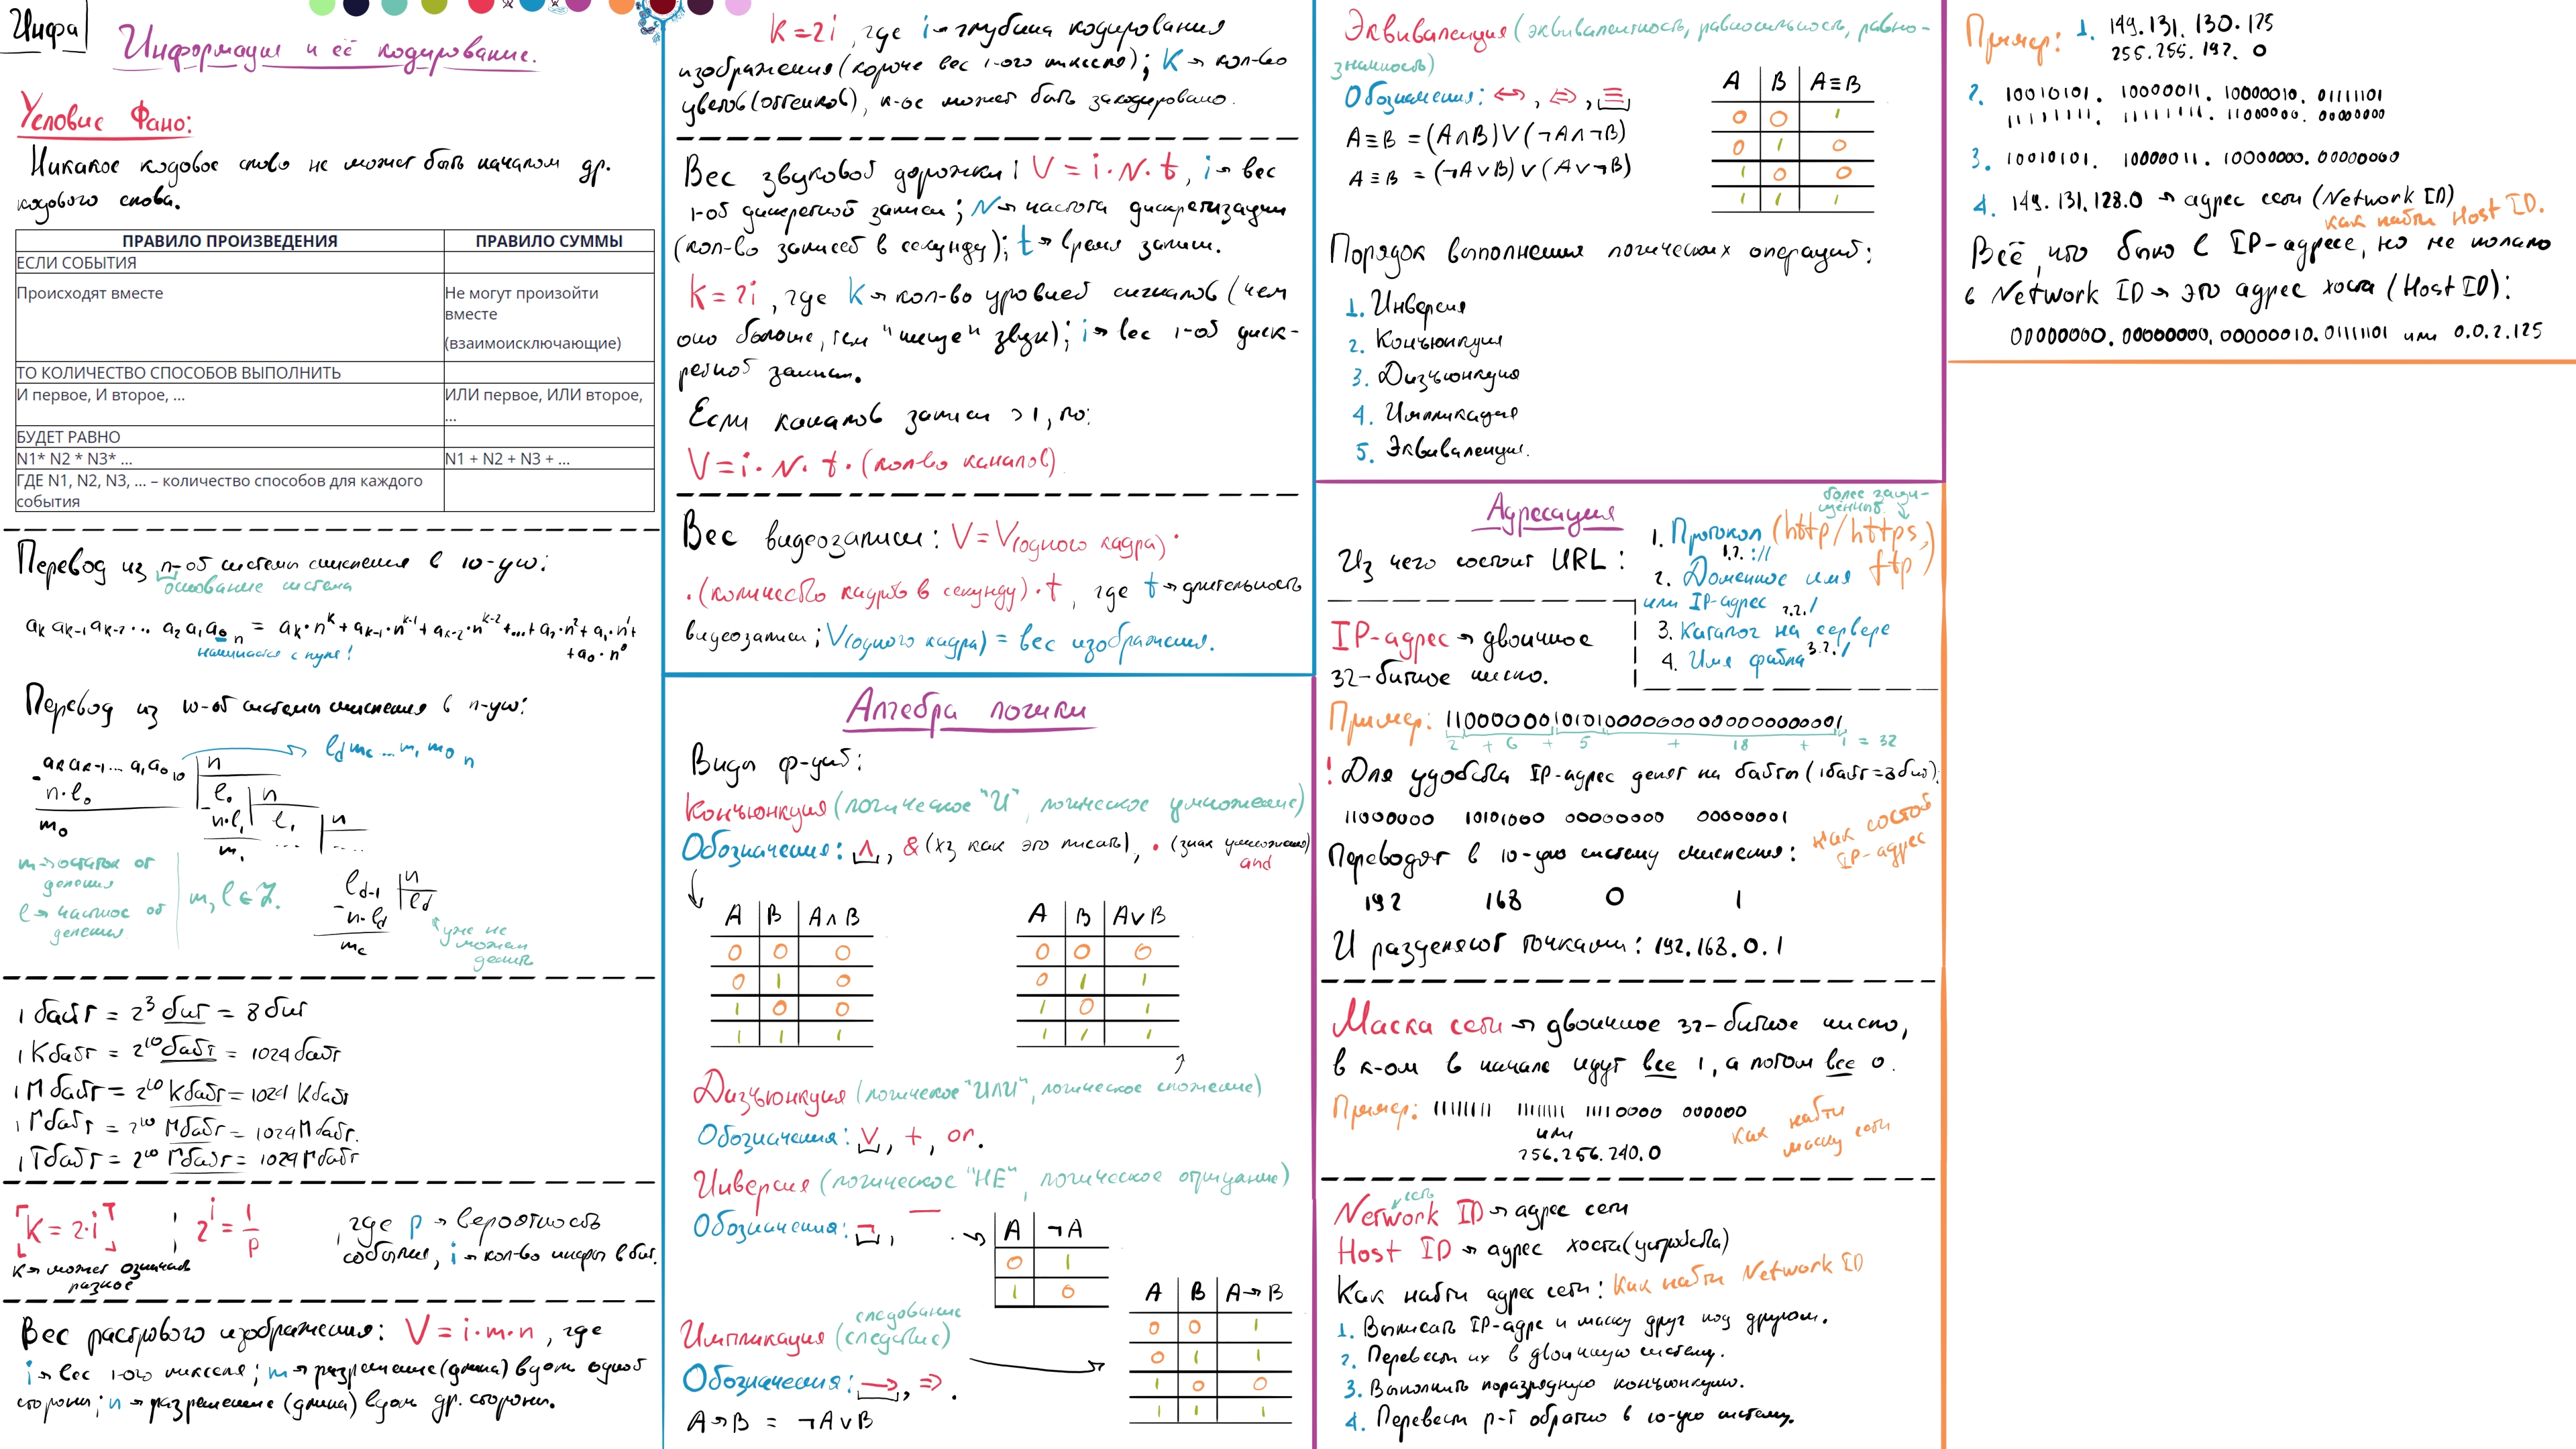 Инфа
Информация и её кодирование.
Условие Фано:
Никакое кодовое слово не может быть началом др.
кодового слова.
ПРАВИЛО ПРОИЗВЕДЕНИЯ ПРАВИЛО СУММЫ
ЕСЛИ СОБЫТИЯ
Происходят вместе Не могут произойти
вместе
(взаимоисключающие)
ТО КОЛИЧЕСТВО СПОСОБОВ ВЫПОЛНИТЬ
И первое, И второе, ... ИЛИ первое, ИЛИ второе,
...
БУДЕТ РАВНО
N1* N2 * N3* ... N1 + N2 + N3 + ...
ГДЕ N1, N2, N3, ... – количество способов для каждого
события
Перевод из n-ой системы счисления в 10-ую:
основание системы
aₖ aₖ₋₁ aₖ₋₂ ... a₂ a₁ a₀ ₙ = aₖ·nᵏ + aₖ₋₁·nᵏ⁻¹ + aₖ₋₂·nᵏ⁻² + ... + a₂·n² + a₁·n¹ +
+ a₀·n⁰
начинается с нуля!
Перевод из 10-ой системы счисления в n-ую:
aₖaₖ₋₁...a₁a₀ ₁₀ n
l_d m_c ... m₁ m₀ n
n·l₀ l₀ n
m₀ n·l₁ l₁ n
m₁ ... ....
m → остаток от
деления
l → частное от
деления
m, l ∈ Z.
l_d-1 n
-n·l_d l_d
m_c
уже не
можем
делить
1 байт = 2³ бит = 8 бит
1 Кбайт = 2¹⁰ байт = 1024 байт
1 Мбайт = 2¹⁰ Кбайт = 1024 Кбайт
1 Гбайт = 2¹⁰ Мбайт = 1024 Мбайт.
1 Тбайт = 2¹⁰ Гбайт = 1024 Гбайт
K = 2·i ; 2ⁱ = 1/p , где p → вероятность
события, i → кол-во инфы в бит.
K → может означать
разное
Вес растрового изображения: V = i·m·n , где
i → вес 1-ого пикселя; m → разрешение (длина) вдоль одной
стороны; n → разрешение (длина) вдоль др. стороны.
K = 2i , где i → глубина кодирования
изображения (короче вес 1-ого пикселя); K → кол-во
цветов (оттенков), к-ое может быть закодировано.
Вес звуковой дорожки: V = i·N·t, i → вес
1-ой дискретной записи; N → частота дискретизации
(кол-во записей в секунду); t → время записи.
K = 2i , где K → кол-во уровней сигналов (чем
оно больше, тем "чище" звук); i → вес 1-ой диск-
ретной записи.
Если каналов записи > 1, то:
V = i·N·t·(кол-во каналов)
Вес видеозаписи: V = V(одного кадра) ·
·(количество кадров в секунду)·t , где t → длительность
видеозаписи; V(одного кадра) = вес изображения.
Алгебра логики
Виды ф-ций:
Конъюнкция (логическое "И", логическое умножение)
Обозначения: ∧, & (хз как это писать), · (знак умножения)
and
A B A∧B
0 0 0
0 1 0
1 0 0
1 1 1
A B A∨B
0 0 0
0 1 1
1 0 1
1 1 1
Дизъюнкция (логическое "ИЛИ", логическое сложение)
Обозначения: ∨, +, or.
Инверсия (логическое "НЕ", логическое отрицание)
Обозначения: ¬, ‾. →
A ¬A
0 1
1 0
следование
Импликация (следствие)
Обозначения: →, ⇒.
A→B = ¬A∨B
A B A→B
0 0 1
0 1 1
1 0 0
1 1 1
Эквиваленция (эквивалентность, равносильность, равно-
значность)
Обозначения: ↔, ⇔, ≡
A≡B = (A∧B)∨(¬A∧¬B)
A≡B = (¬A∨B)∨(A∨¬B)
A B A≡B
0 0 1
0 1 0
1 0 0
1 1 1
Порядок выполнения логических операций:
1. Инверсия
2. Конъюнкция
3. Дизъюнкция
4. Импликация
5. Эквиваленция.
Адресация
более защи-
щённый
Из чего состоит URL:
1. Протокол (http/https,
ftp)
1.2. ://
2. Доменное имя
или IP-адрес 2.2. /
3. Каталог на сервере
4. Имя файла 3.2. /
IP-адрес → двоичное
32-битное число.
Пример: 11000000101010000000000000000001
2 + 6 + 5 + 18 + 1 = 32
! Для удобства IP-адрес делят на байты (1 байт = 8 бит):
11000000 10101000 00000000 00000001
как состав
IP-адрес
Переводят в 10-ую систему счисления:
192 168 0 1
И разделяют точками: 192.168.0.1
Маска сети → двоичное 32-битное число,
в к-ом в начале идут все 1, а потом все 0.
Пример: 11111111 11111111 11110000 000000
или
256.256.240.0
как найти
маску сети
сеть
Network ID → адрес сети
Host ID → адрес хоста (устройства)
Как найти адрес сети: Как найти Network ID
1. Выписать IP-адре и маску друг под другом.
2. Перевести их в двоичную систему.
3. Выполнить поразрядную конъюнкцию.
4. Перевести р-т обратно в 10-ую систему.
Пример: 1. 149.131.130.125
255.255.192.0
2. 10010101. 10000011. 10000010. 01111101
11111111. 11111111. 11000000. 00000000
3. 10010101. 10000011. 10000000. 00000000
4. 149.131.128.0 → адрес сети (Network ID)
как найти Host ID.
Всё, что было в IP-адресе, но не попало
в Network ID → это адрес хоста (Host ID):
00000000. 00000000. 00000010. 01111101 или 0.0.2.125